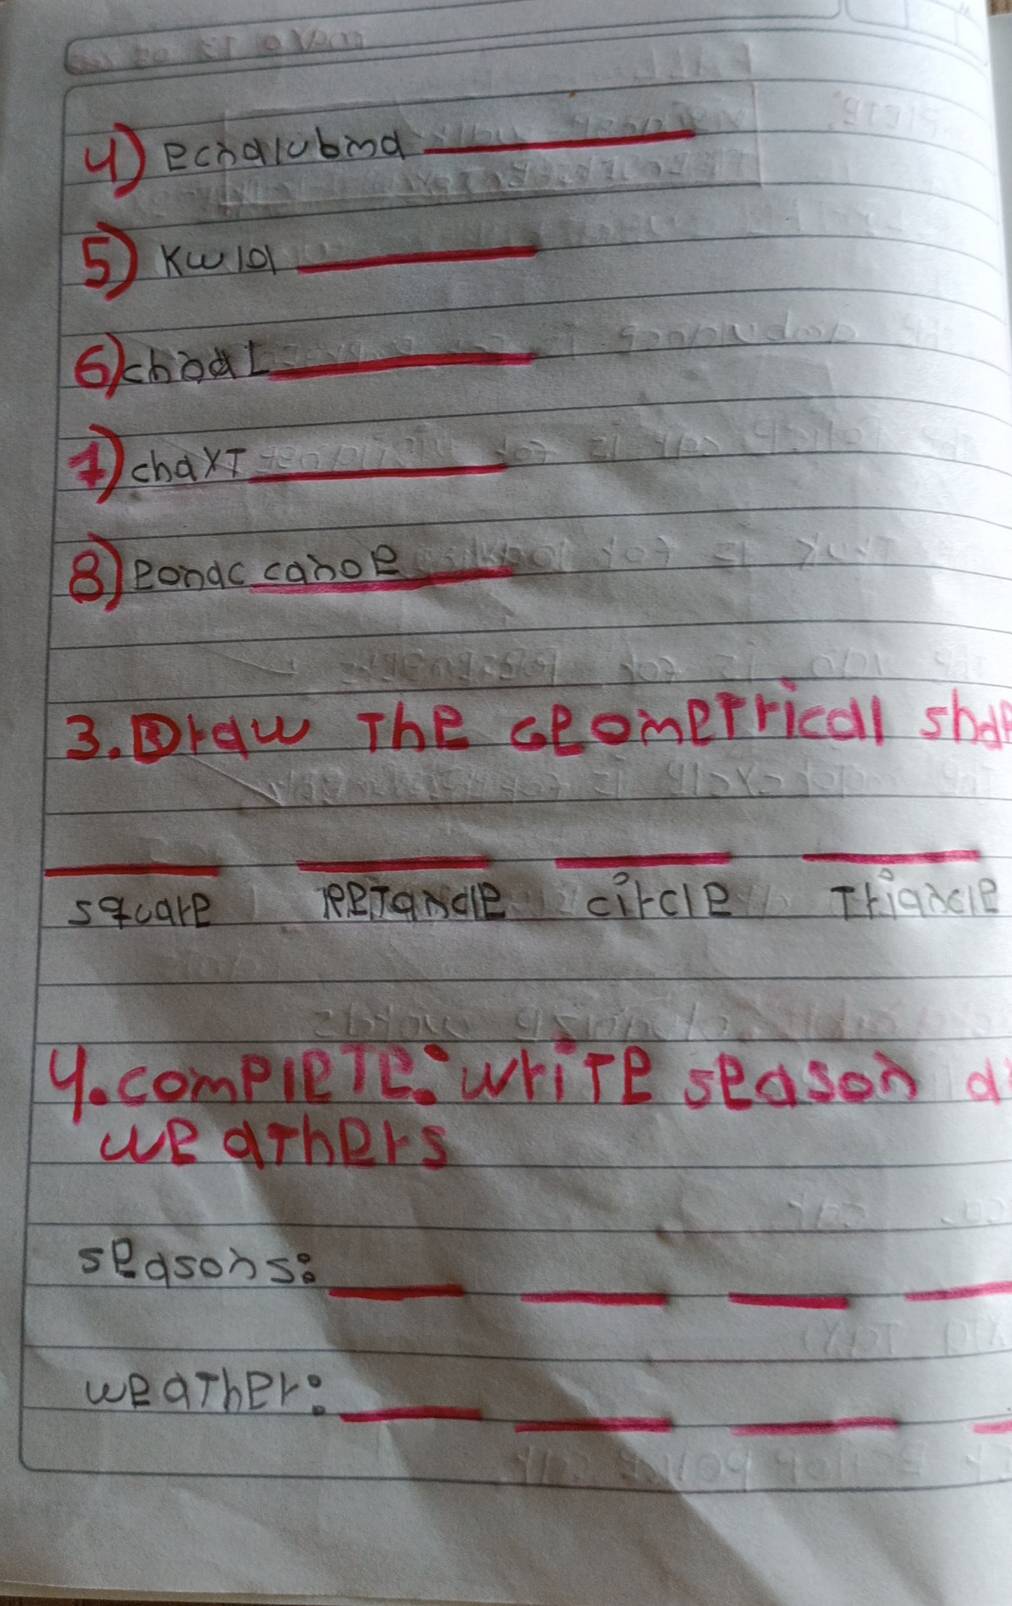 4) ecnalubma
5) Kwlal
6) chaal
7) chaxT
8) eonac canoe
3. Draw The Geometrical shap
square rectangle circle Triangle
4. complete: write season a
weathers
seasons:
weather: